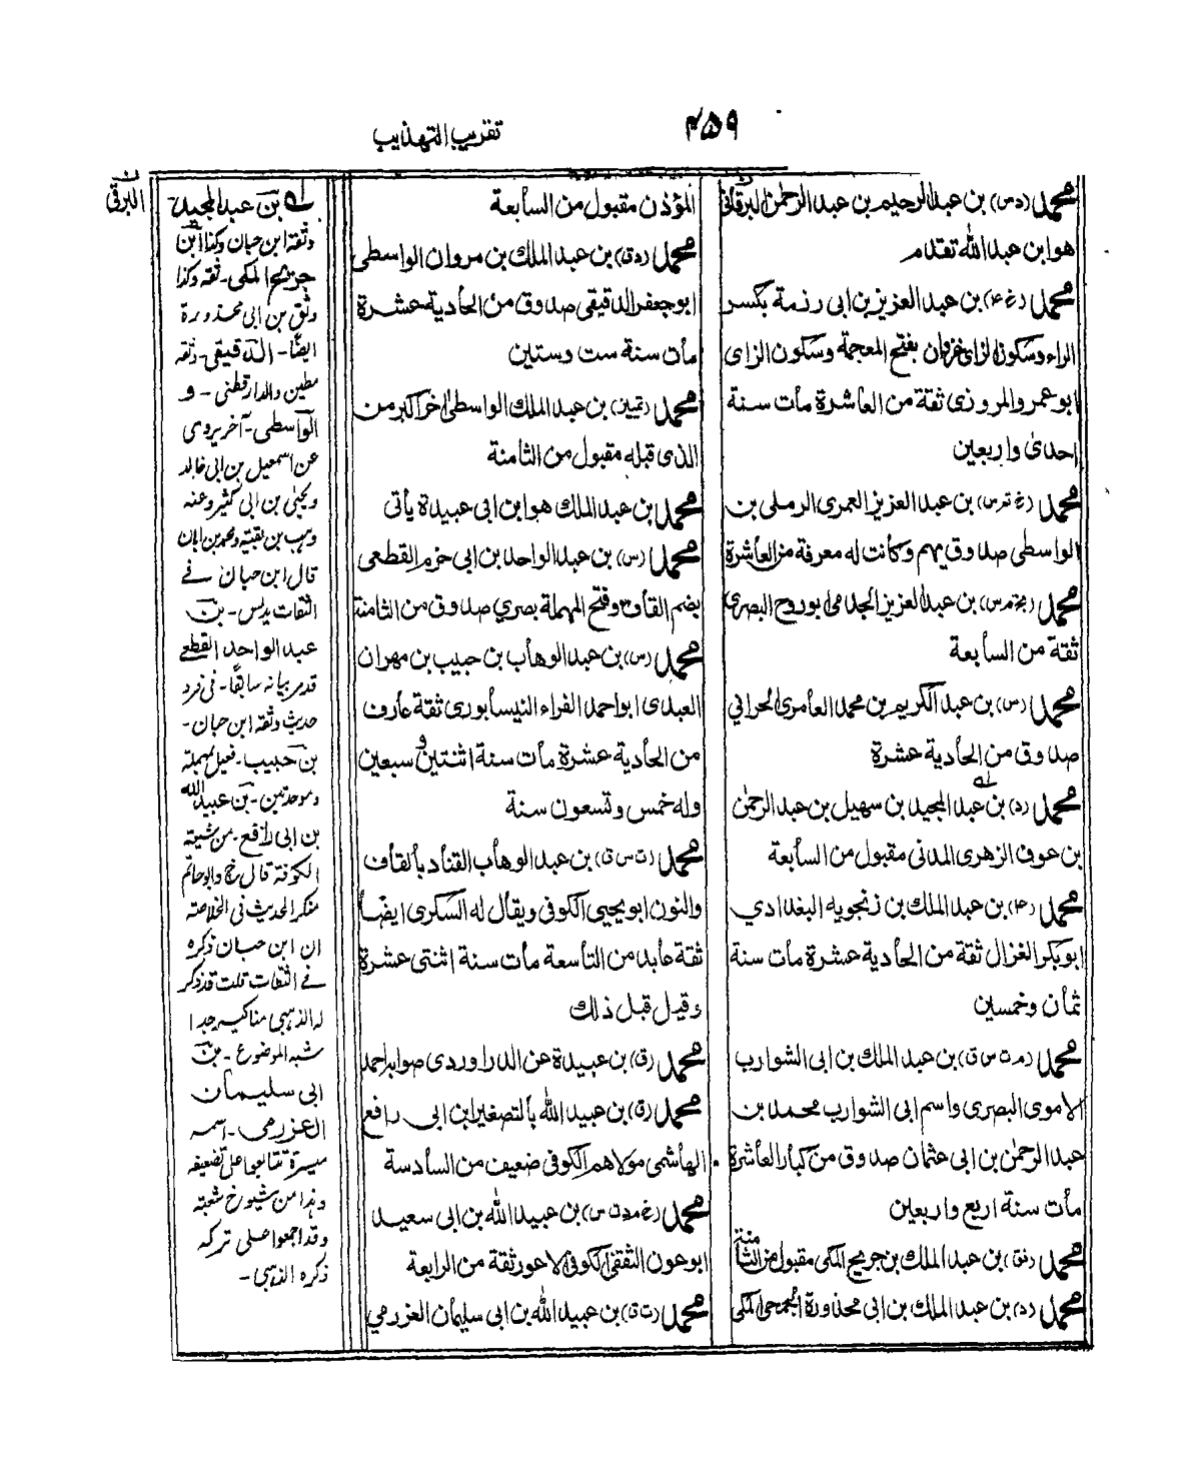 ۴۵۹
تقريب التهذيب
محمد (د س) بن عبد الرحيم بن عبد الرحمن البرقاني
هو ابن عبد الله تقدم
محمد (خ ۴) بن عبد العزيز بن ابى رزمة بكسر
الراء وسكون الزاى غزوان بفتح المعجمة وسكون الزاى
ابو عمرو المروزى ثقة من العاشرة مات سنة
احدى واربعين
محمد (خ تم س) بن عبد العزيز العمرى الرملى بن
الواسطى صدوق يهم وكانت له معرفة من العاشرة
محمد (بخ م س) بن عبد العزيز الجدامى ابو روح البصرى
ثقة من السابعة
محمد (س) بن عبد الكريم بن محمد العامرى الحرانى
صدوق من الحادية عشرة
محمد (د) بن عبد المجيد بن سهيل بن عبد الرحمن
بن عوف الزهرى المدنى مقبول من السابعة
محمد (۴) بن عبد الملك بن زنجويه البغدادي
ابو بكر الغزال ثقة من الحادية عشرة مات سنة
ثمان وخمسين
محمد (م ت س ق) بن عبد الملك بن ابى الشوارب
الاموى البصرى واسم ابى الشوارب محمد بن
عبد الرحمن بن ابى عثمان صدوق من كبار العاشرة
مات سنة اربع واربعين
محمد بن عبد الملك بن جريج المكى مقبول من الثامنة
محمد (د) بن عبد الملك بن ابى محذورة الجمحى المكى
المؤذن مقبول من السابعة
محمد (د ق) بن عبد الملك بن مروان الواسطى
ابو جعفر الدقيقى صدوق من الحادية عشرة
مات سنة ست وستين
محمد (تمييز) بن عبد الملك الواسطى اخر اكبر من
الذى قبله مقبول من الثامنة
محمد بن عبد الملك هو ابن ابى عبيدة ياتى
محمد (س) بن عبد الواحد بن ابى حزم القطعى
بضم القاف وفتح المهملة بصري صدوق من الثامنة
محمد (س) بن عبد الوهاب بن حبيب بن مهران
العبدى ابو احمد الفراء النيسابورى ثقة عارف
من الحادية عشرة مات سنة اثنتين وسبعين
وله خمس وتسعون سنة
محمد (ت س ق) بن عبد الوهاب القناد بالقاف
والنون ابو يحيى الكوفى ويقال له السكرى ايضا
ثقة عابد من التاسعة مات سنة اثنتى عشرة
وقيل قبل ذلك
محمد (ق) بن عبيدة عن الدراوردى صوابه احمد
محمد (ق) بن عبيد الله بالتصغير ابن ابى رافع
الهاشمى مولاهم الكوفى ضعيف من السادسة
محمد (خ م د ت س) بن عبيد الله بن ابى سعيد
ابو عون الثقفى الكوفى الاعور ثقة من الرابعة
محمد (ت ق) بن عبيد الله بن ابى سليمان العزرمي
البرقي
له بن عبد المجيد
وثقه ابن حبان وكذا ابن
جريج المكى - ثقه وكذا
وثق بن ابى محذورة
ايضًا - الدقيقى - ثقه
مطين والدارقطنى - و
الواسطى - آخر يروى
عن اسمعيل بن ابى خالد
ويحيٰى بن ابى كثير وعنه
وهب بن بقية ومحمد بن ابان
قال ابن حبان فے
الثقات يدلس - بن
عبد الواحد القطعے
قد مر بيانه سابقًا - فى فرد
حديث وثقه ابن حبان -
بن حبيب - فعيل بمهملة
وموحدتين - بن عبيد الله
بن ابى رافع - من شيعة
الكوفة قال خ وابو حاتم
منكر الحديث فى الخلاصة
ان ابن حبان ذكره
فے الثقات قلت قد ذكر
له الذهبى مناكير جدا
شبه الموضوع - بن
ابى سليمان
العزرمى - اسمه
ميسرة تتابعوا على تضعيفه
وهذا من شيوخ شعبة
وقد اجمعوا على تركه
ذكره الذهبى -